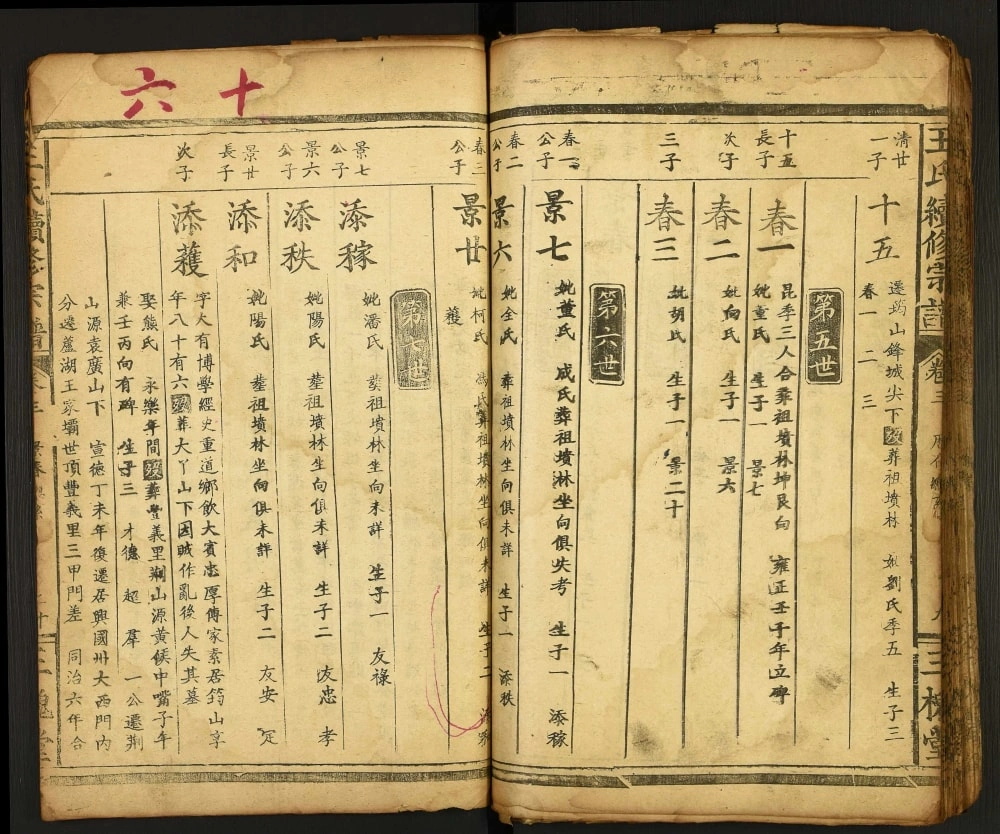 王氏續修宗譜 卷三 三槐堂
清廿一子
十五 遷筠山鋒城尖下歿葬祖墳林 妣劉氏季五 生子三
春一 二 三
第五世
十五長子
春一 昆季三人合葬祖墳林坤艮向 雍正壬子年立碑
妣童氏 生子一 景七
次子
春二 妣向氏 生子一 景六
三子
春三 妣胡氏 生子一 景二十
第六世
春一公子
景七 妣董氏 成氏葬祖墳淋坐向俱失考 生子一 添稼
春二公子
景六 妣全氏 葬祖墳林坐向俱未詳 生子一 添秩
六十
春三公子
景廿 妣柯氏 馮氏葬祖墳林坐向俱未詳 生子二 添和
蒦
第七世
景七公子
添稼 妣潘氏 葬祖墳林坐向未詳 生子一 友祿
景六公子
添秩 妣陽氏 葬祖墳林坐向俱未詳 生子二 友忠 孝
景廿長子
添和 妣陽氏 葬祖墳林坐向俱未詳 生子二 友安 定
次子
添蒦 字大有博學經史重道鄉飲大賓忠厚傳家素居筠山享
年八十有六歿葬大丫山下因賊作亂後人失其墓
娶熊氏 永樂年間歿葬豐義里荆山源黃候中嘴子午
兼壬丙向有碑 生子三 才德 超 羣 一公遷荆
山源袁廣山下 宣德丁未年復遷居興國州大西門內
分遶蘆湖王家壩世頂豐義里三甲門差 同治六年合
王氏續修宗譜 卷三 三槐堂